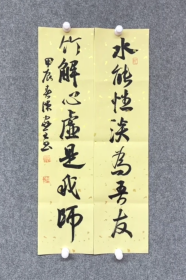 水能性淡為吾友
竹解心虛是我師
甲辰